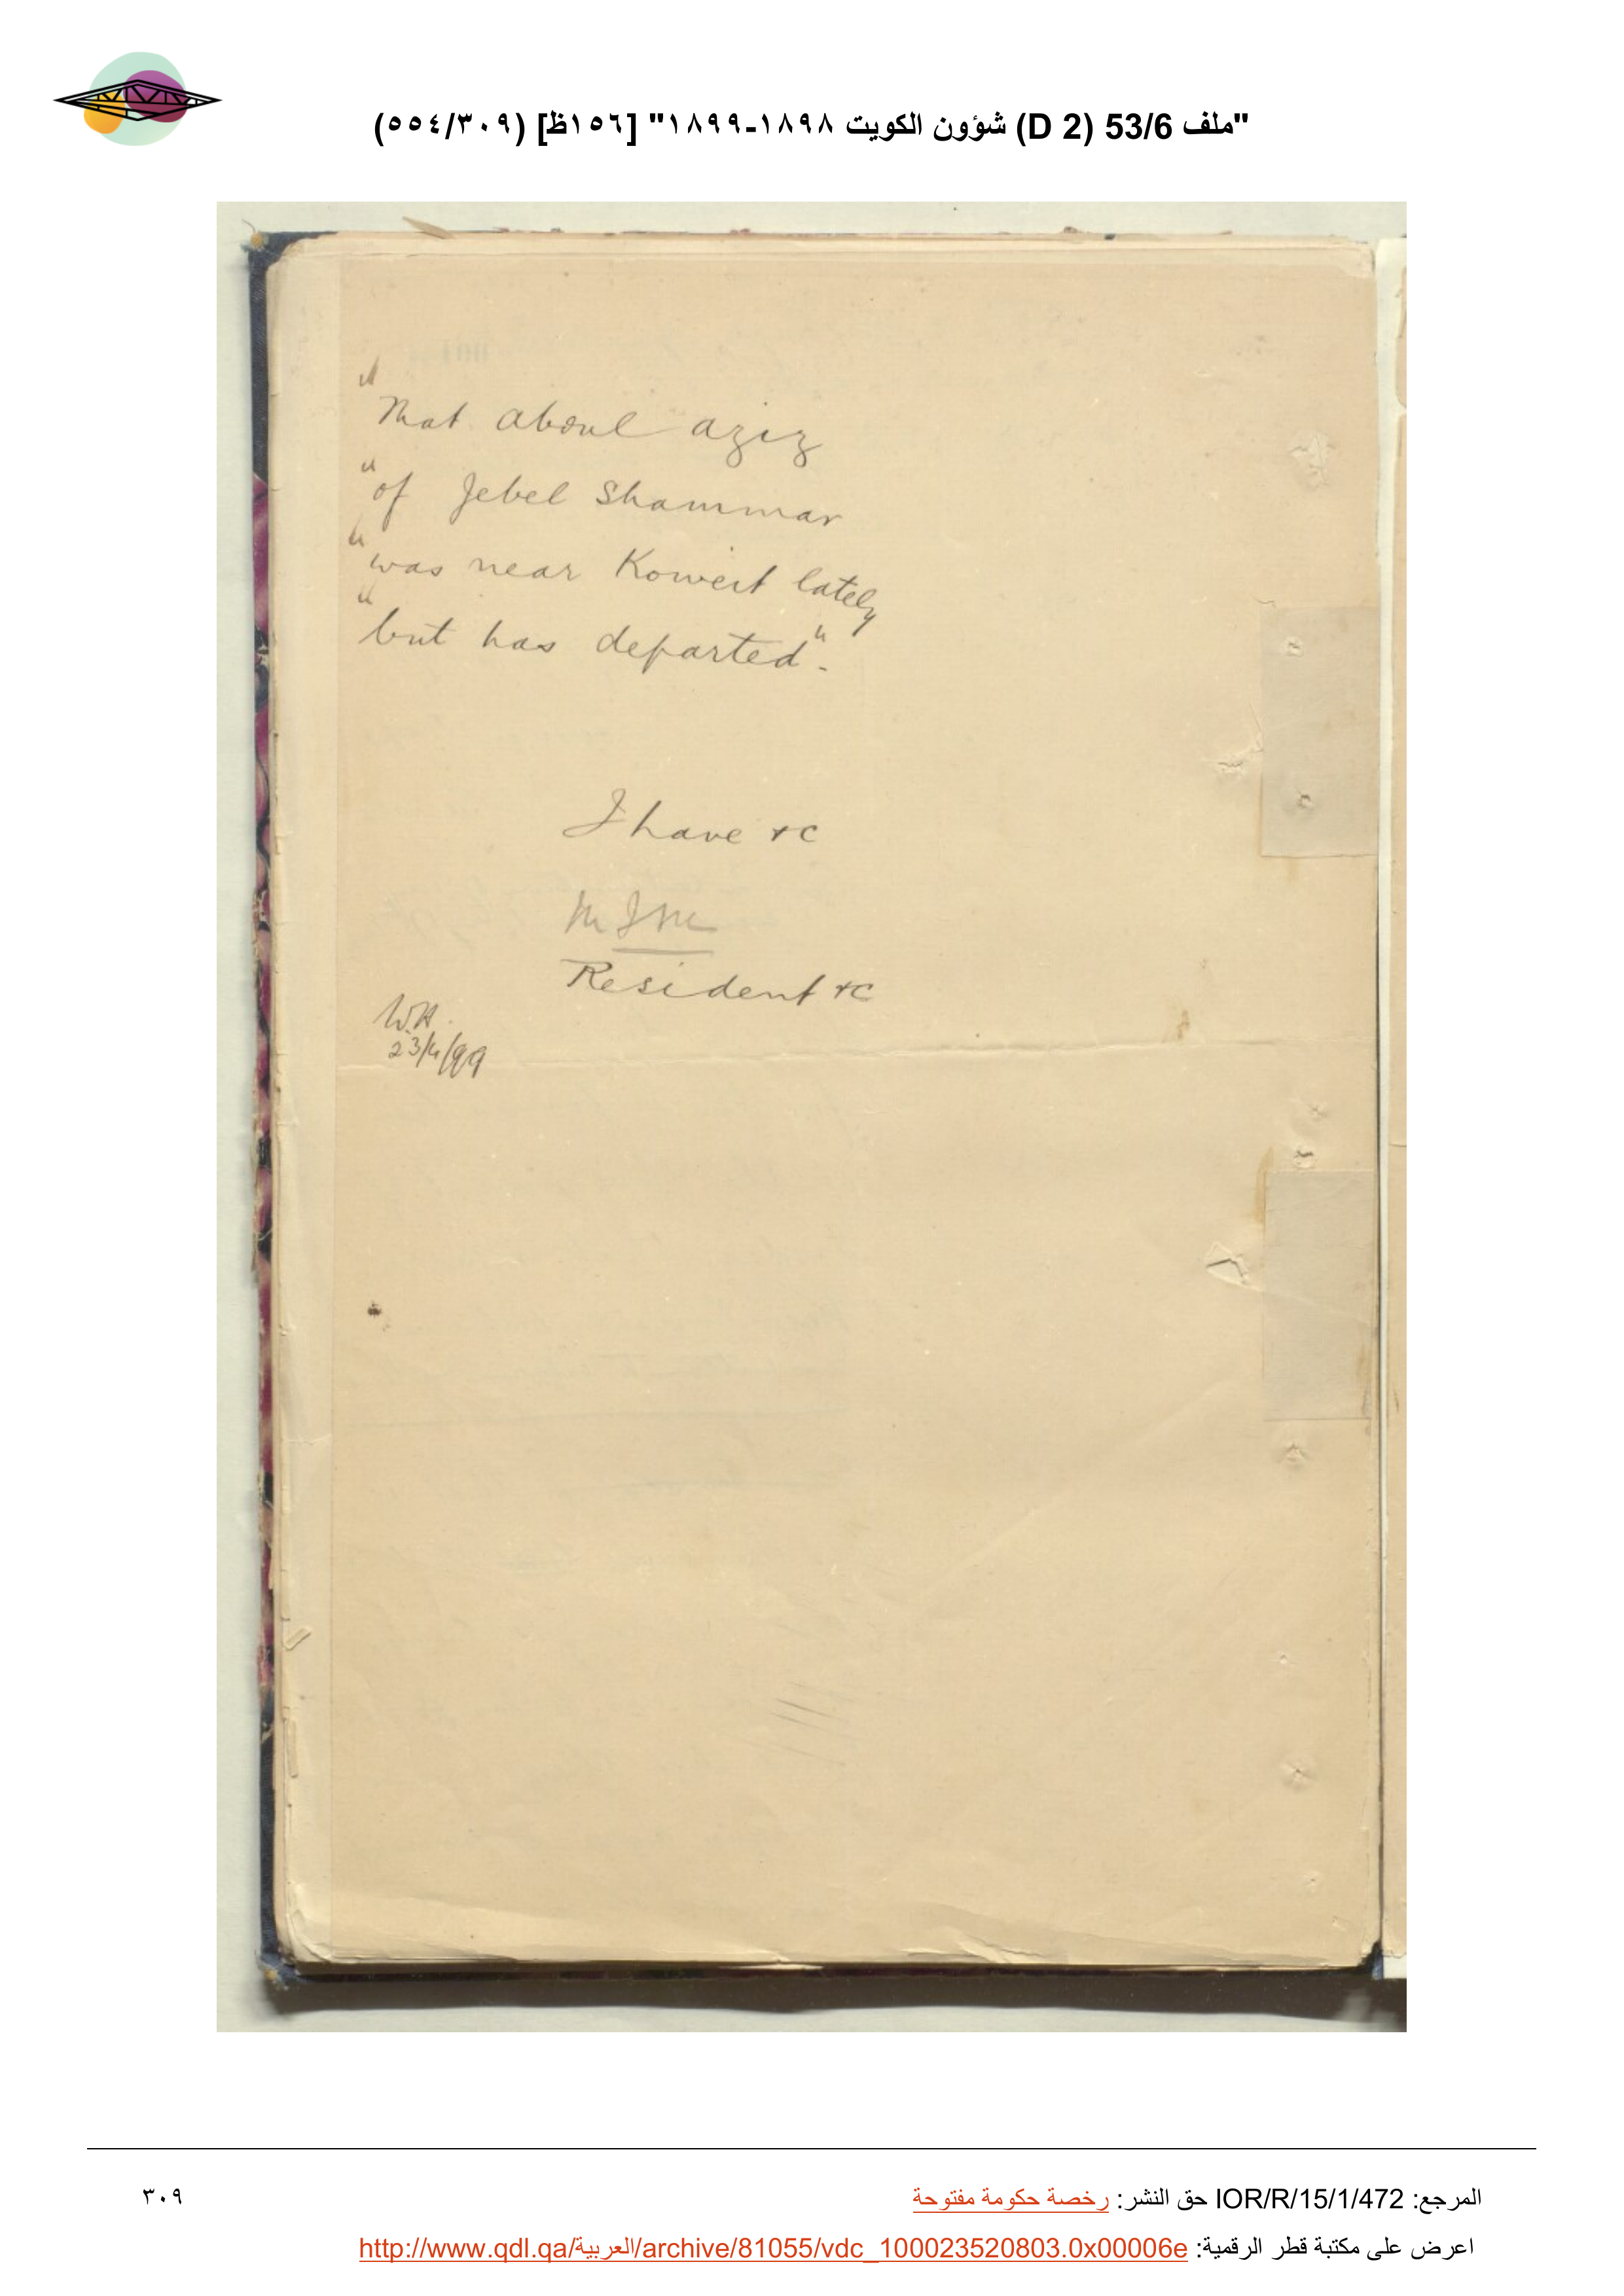 "ملف 53/6 (D 2) شؤون الكويت ١٨٩٨-١٨٩٩" [١٥٦ظ] (٣٠٩/٥٥٤)
"That Abdul Aziz
"of Jebel Shammar
"was near Koweit lately
"but has departed".
I have &c
M J M
Resident &c
W.H.
23/4/99
المرجع: IOR/R/15/1/472 حق النشر: رخصة حكومة مفتوحة
٣٠٩
اعرض على مكتبة قطر الرقمية: http://www.qdl.qa/العربية/archive/81055/vdc_100023520803.0x00006e